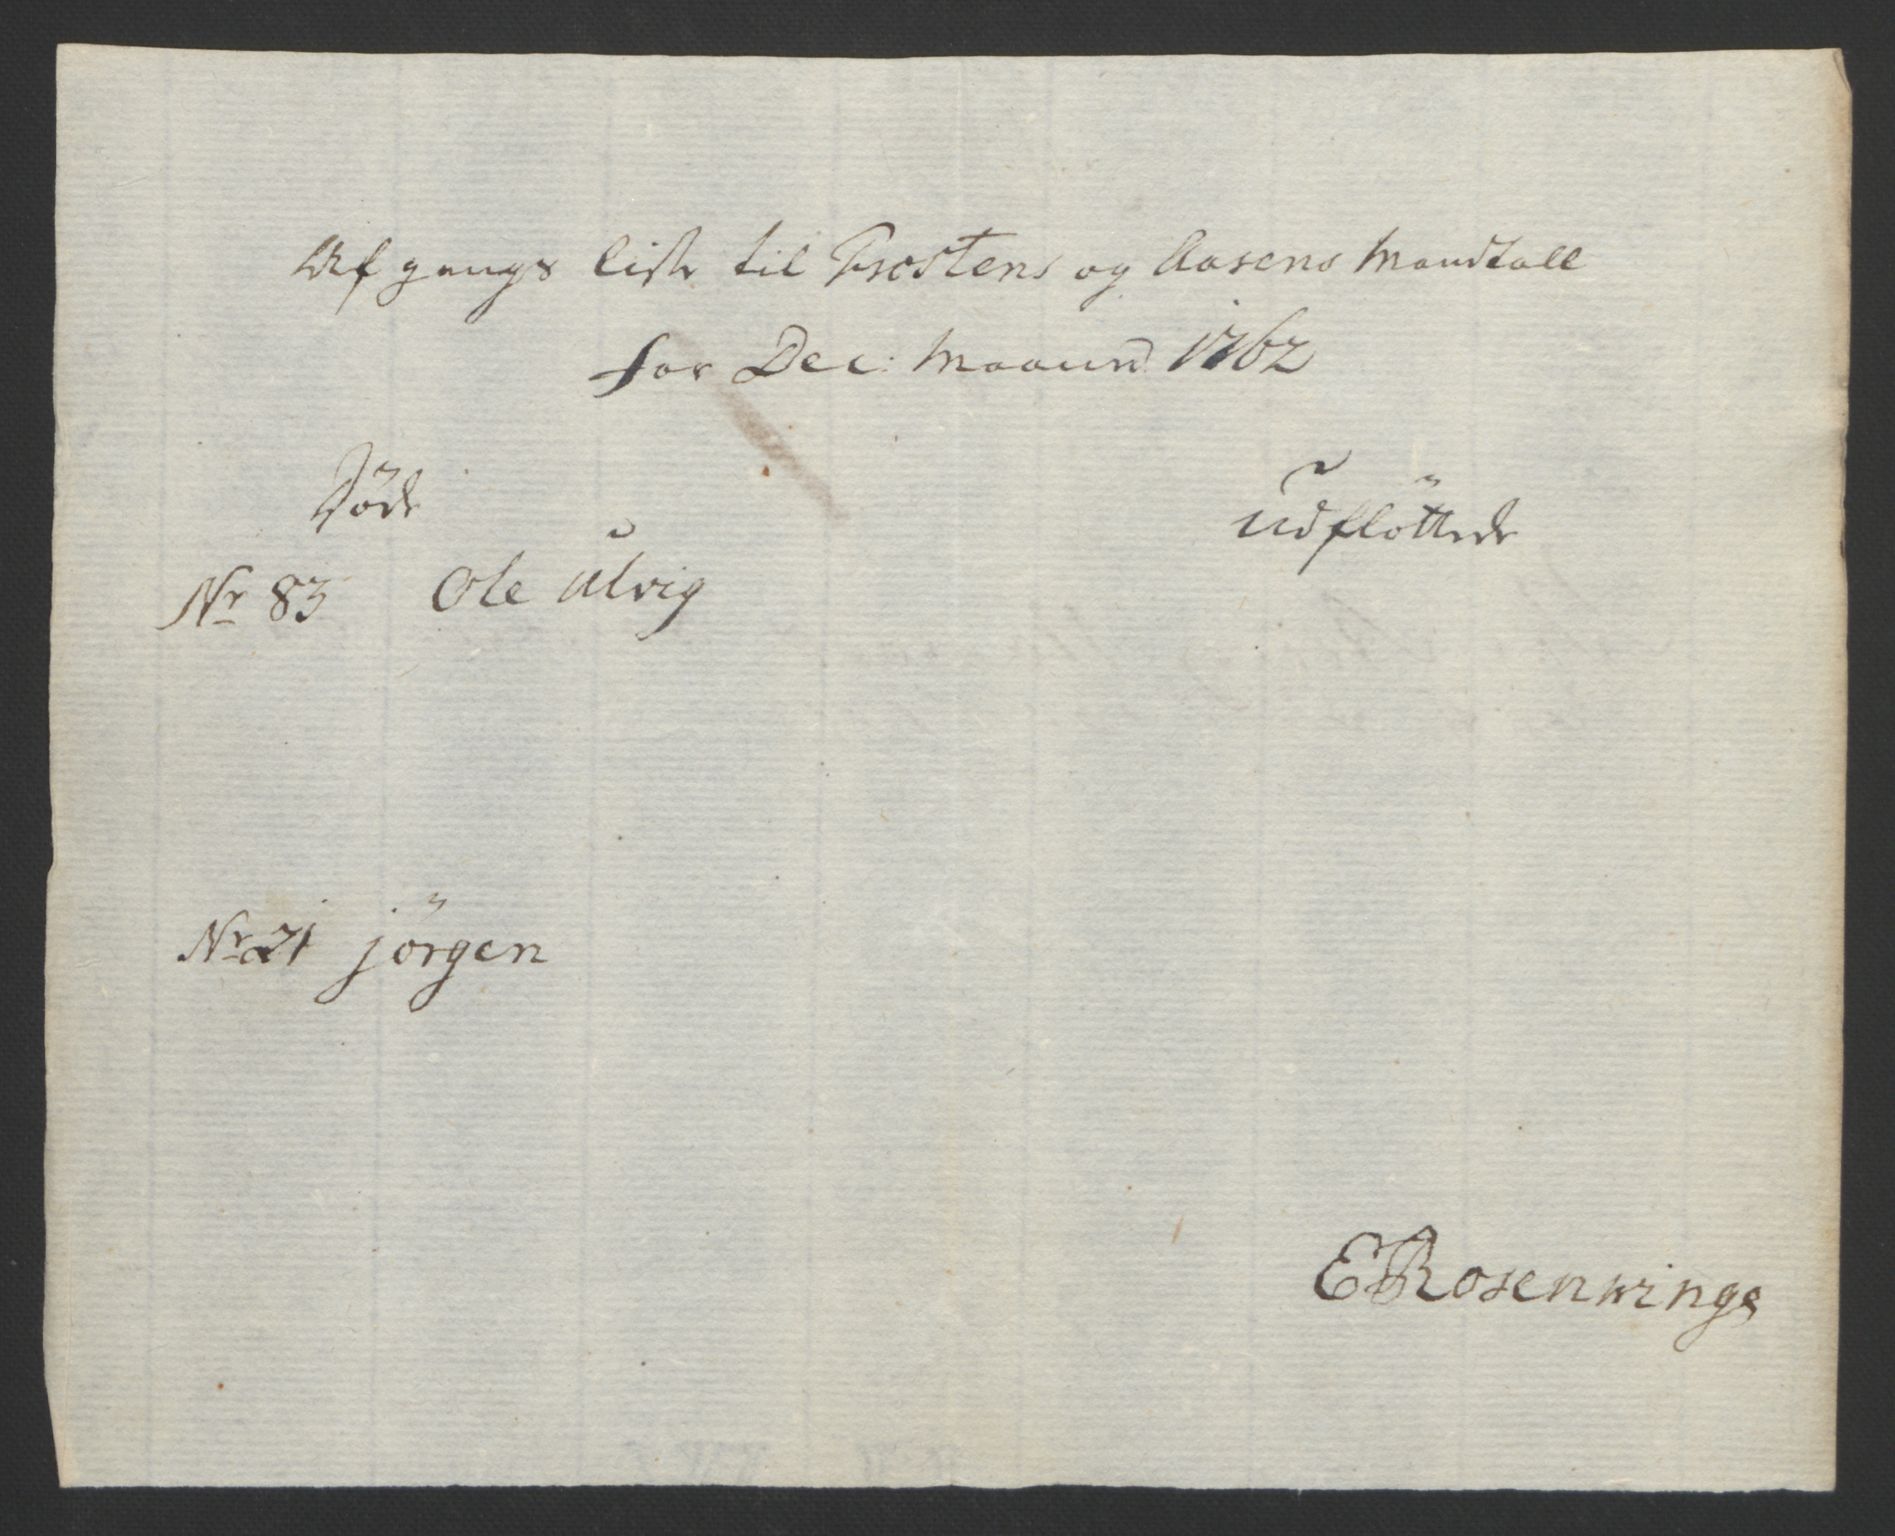 Afgangs liste til Frostens og Aasens Mandtall
for Dec: Maaned 1762
Døde
Udflöttede
Nr 83 Ole Ulvig
Nr 21 jörgen
ERosenwinge